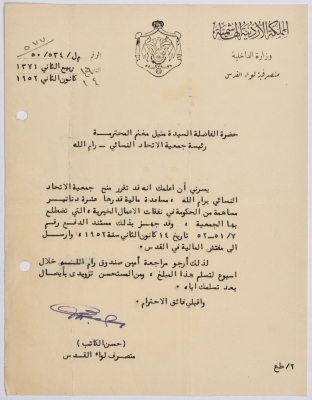 المملكة الأردنية الهاشمية
وزارة الداخلية
متصرفية لواء القدس
الرقم م ل / ٥٣٤ / ٥٠
التاريخ ربيع الثاني ١٣٧١
كانون الثاني ١٩٥٢
حضرة الفاضلة السيدة متيل مغنم المحترمة
رئيسة جمعية الاتحاد النسائي - رام الله
يسرني أن أعلمك انه قد تقرر منح جمعية الاتحاد
النسائي برام الله، مساعدة مالية قدرها عشرة دنانير
مساهمة من الحكومة في نفقات الاعمال الخيرية التي تضطلع
بها الجمعية، وقد جهز بذلك مستند الدفع رقم
٥١/٧ - ٥٢ تاريخ ١٩ كانون الثاني سنة ١٩٥٢، وارسل
الى مفتش المالية في القدس.
لذلك أرجو مراجعة أمين صندوق رام الله خلال
اسبوع لتسلم هذا المبلغ، ومن المستحسن تزويدي بأيصال
بعد تسلمك اياه.
واقبلي فائق الاحترام.
(حسن الكاتب)
متصرف لواء القدس
ط/٢ع